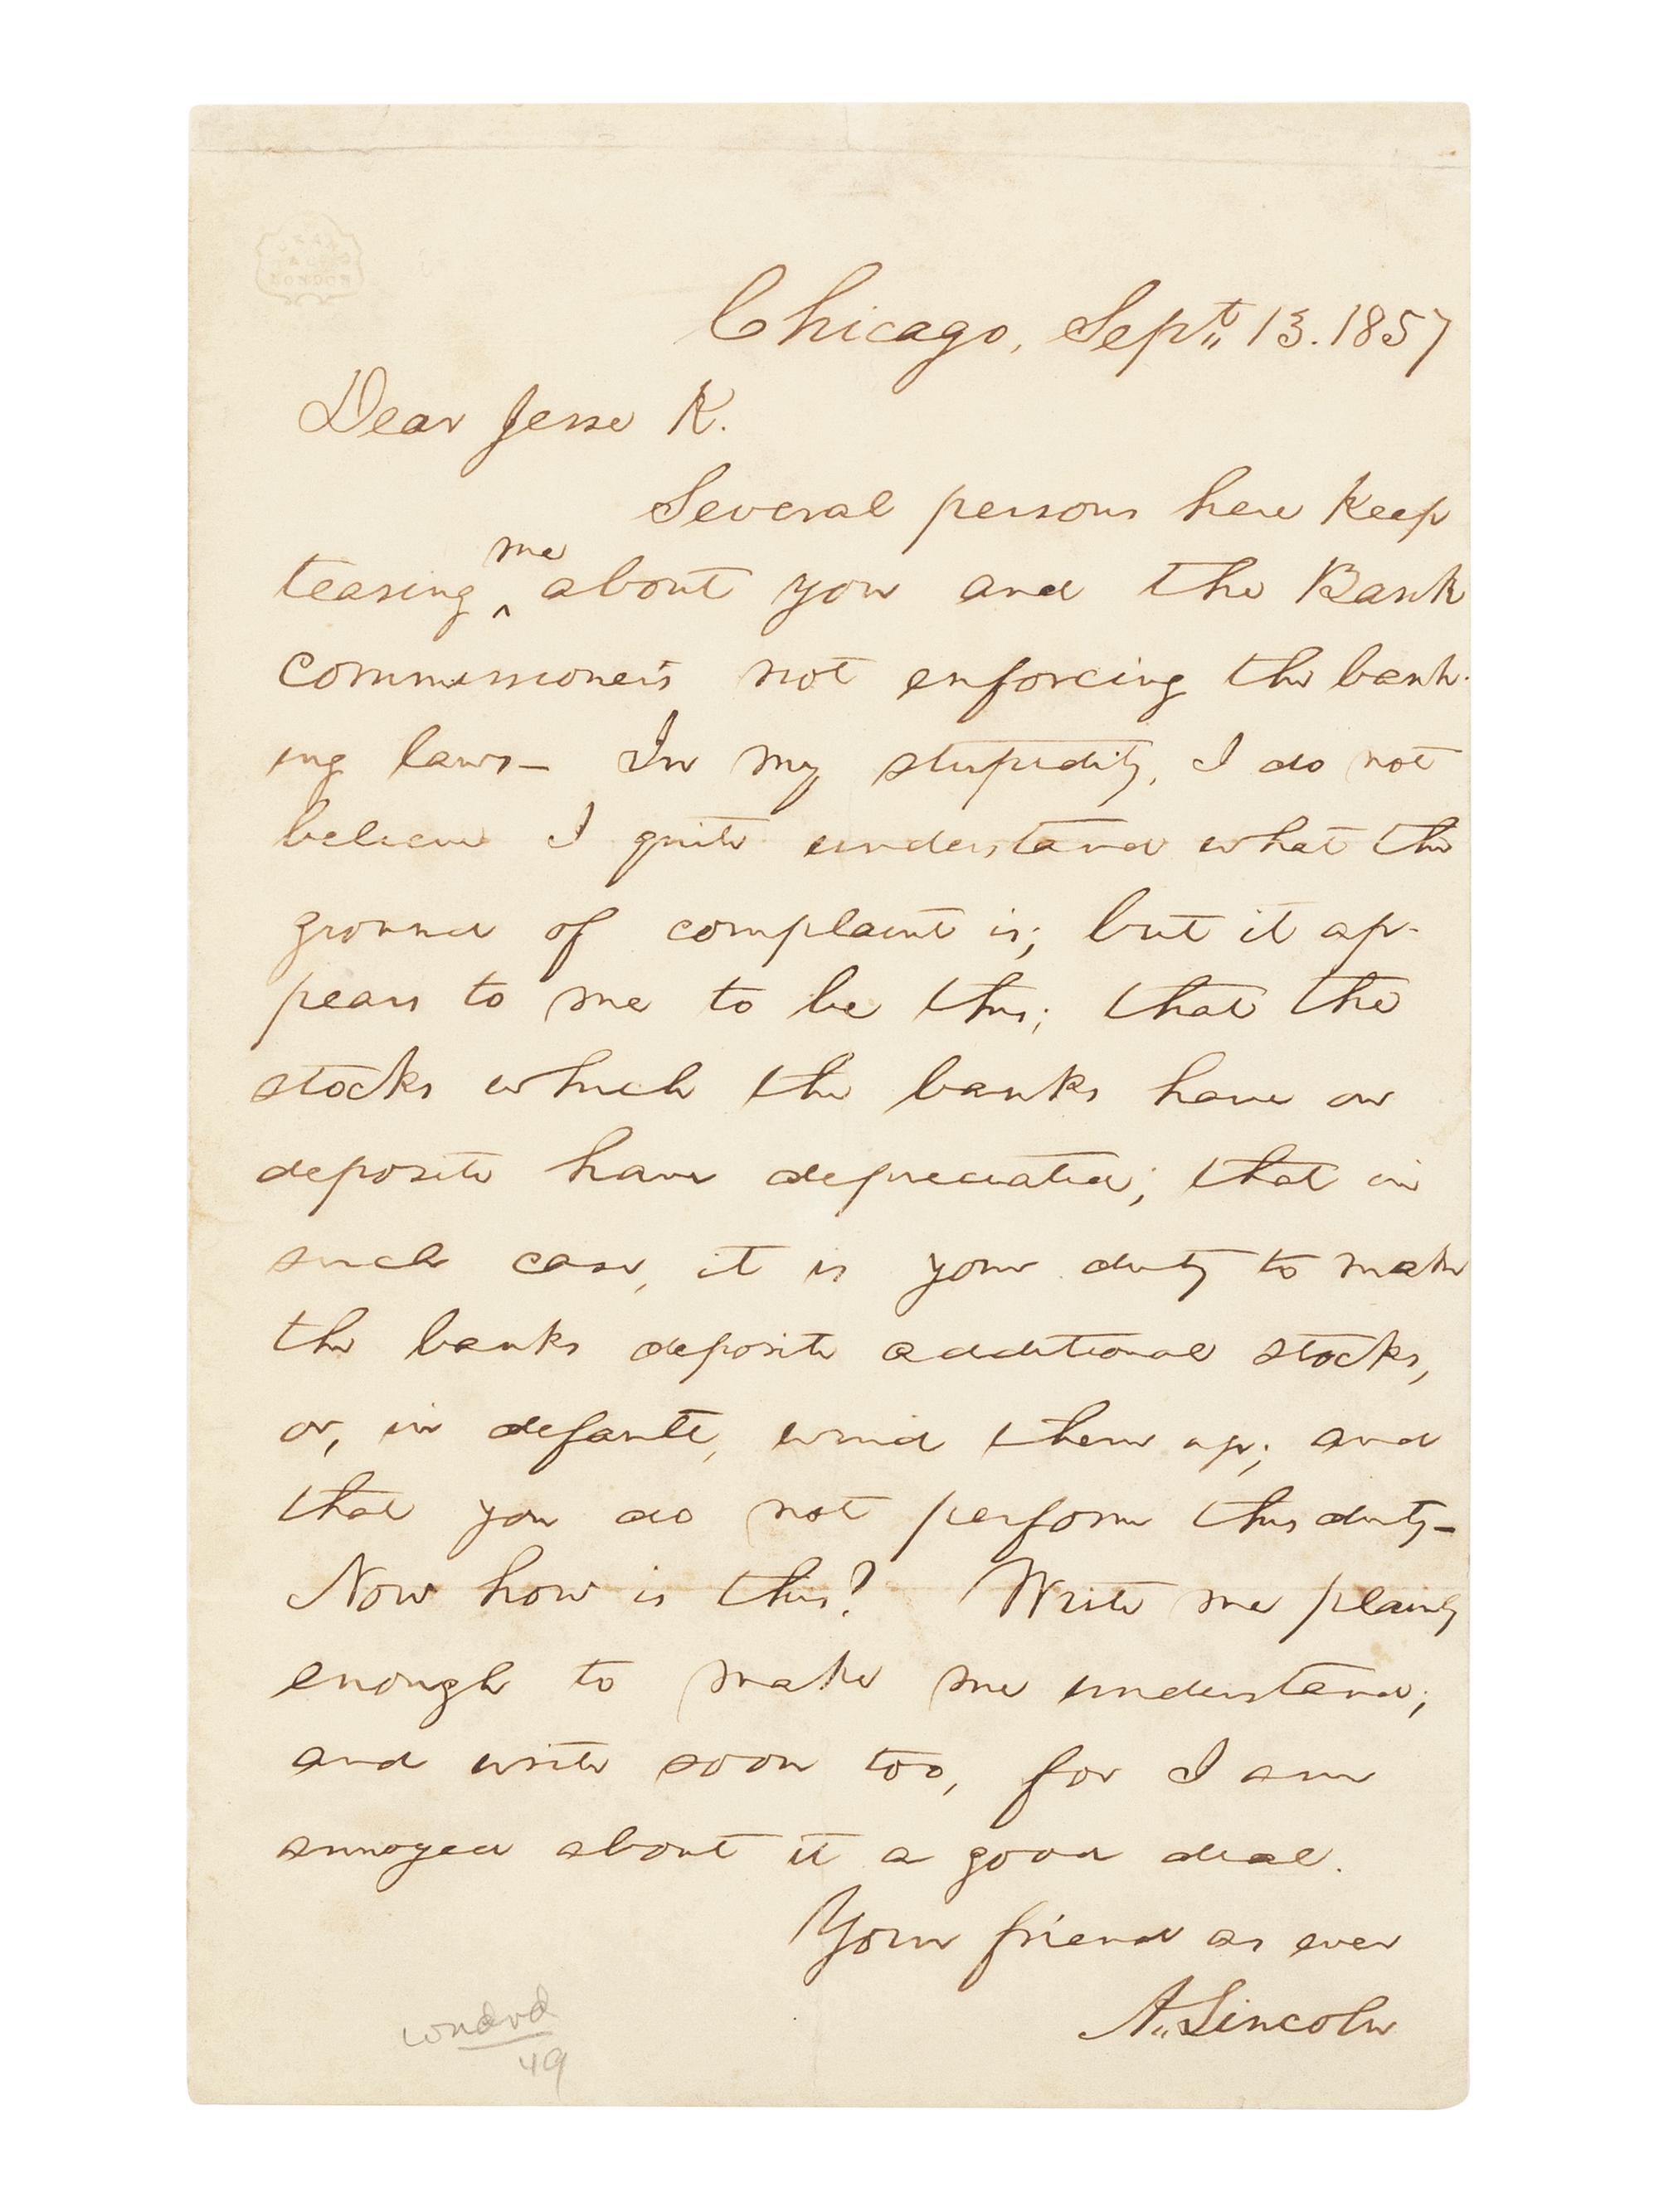 Chicago, Sept. 13. 1857
Dear Jesse K.
Several persons here keep
me
teasing ^ about you and the Bank
commissioner's not enforcing the bank-
ing laws— In my stupidity, I do not
believe I quite understand what the
ground of complaint is; but it ap-
pears to me to be this; that the
stocks which the banks have on
deposite have depreciated; that in
such case, it is your duty to make
the banks deposite additional stocks,
or, in default, wind them up; and
that you do not perform this duty—
Now how is this? Write me plainly
enough to make me understand;
and write soon too, for I am
annoyed about it a good deal.
Your friend as ever
A. Lincoln
49